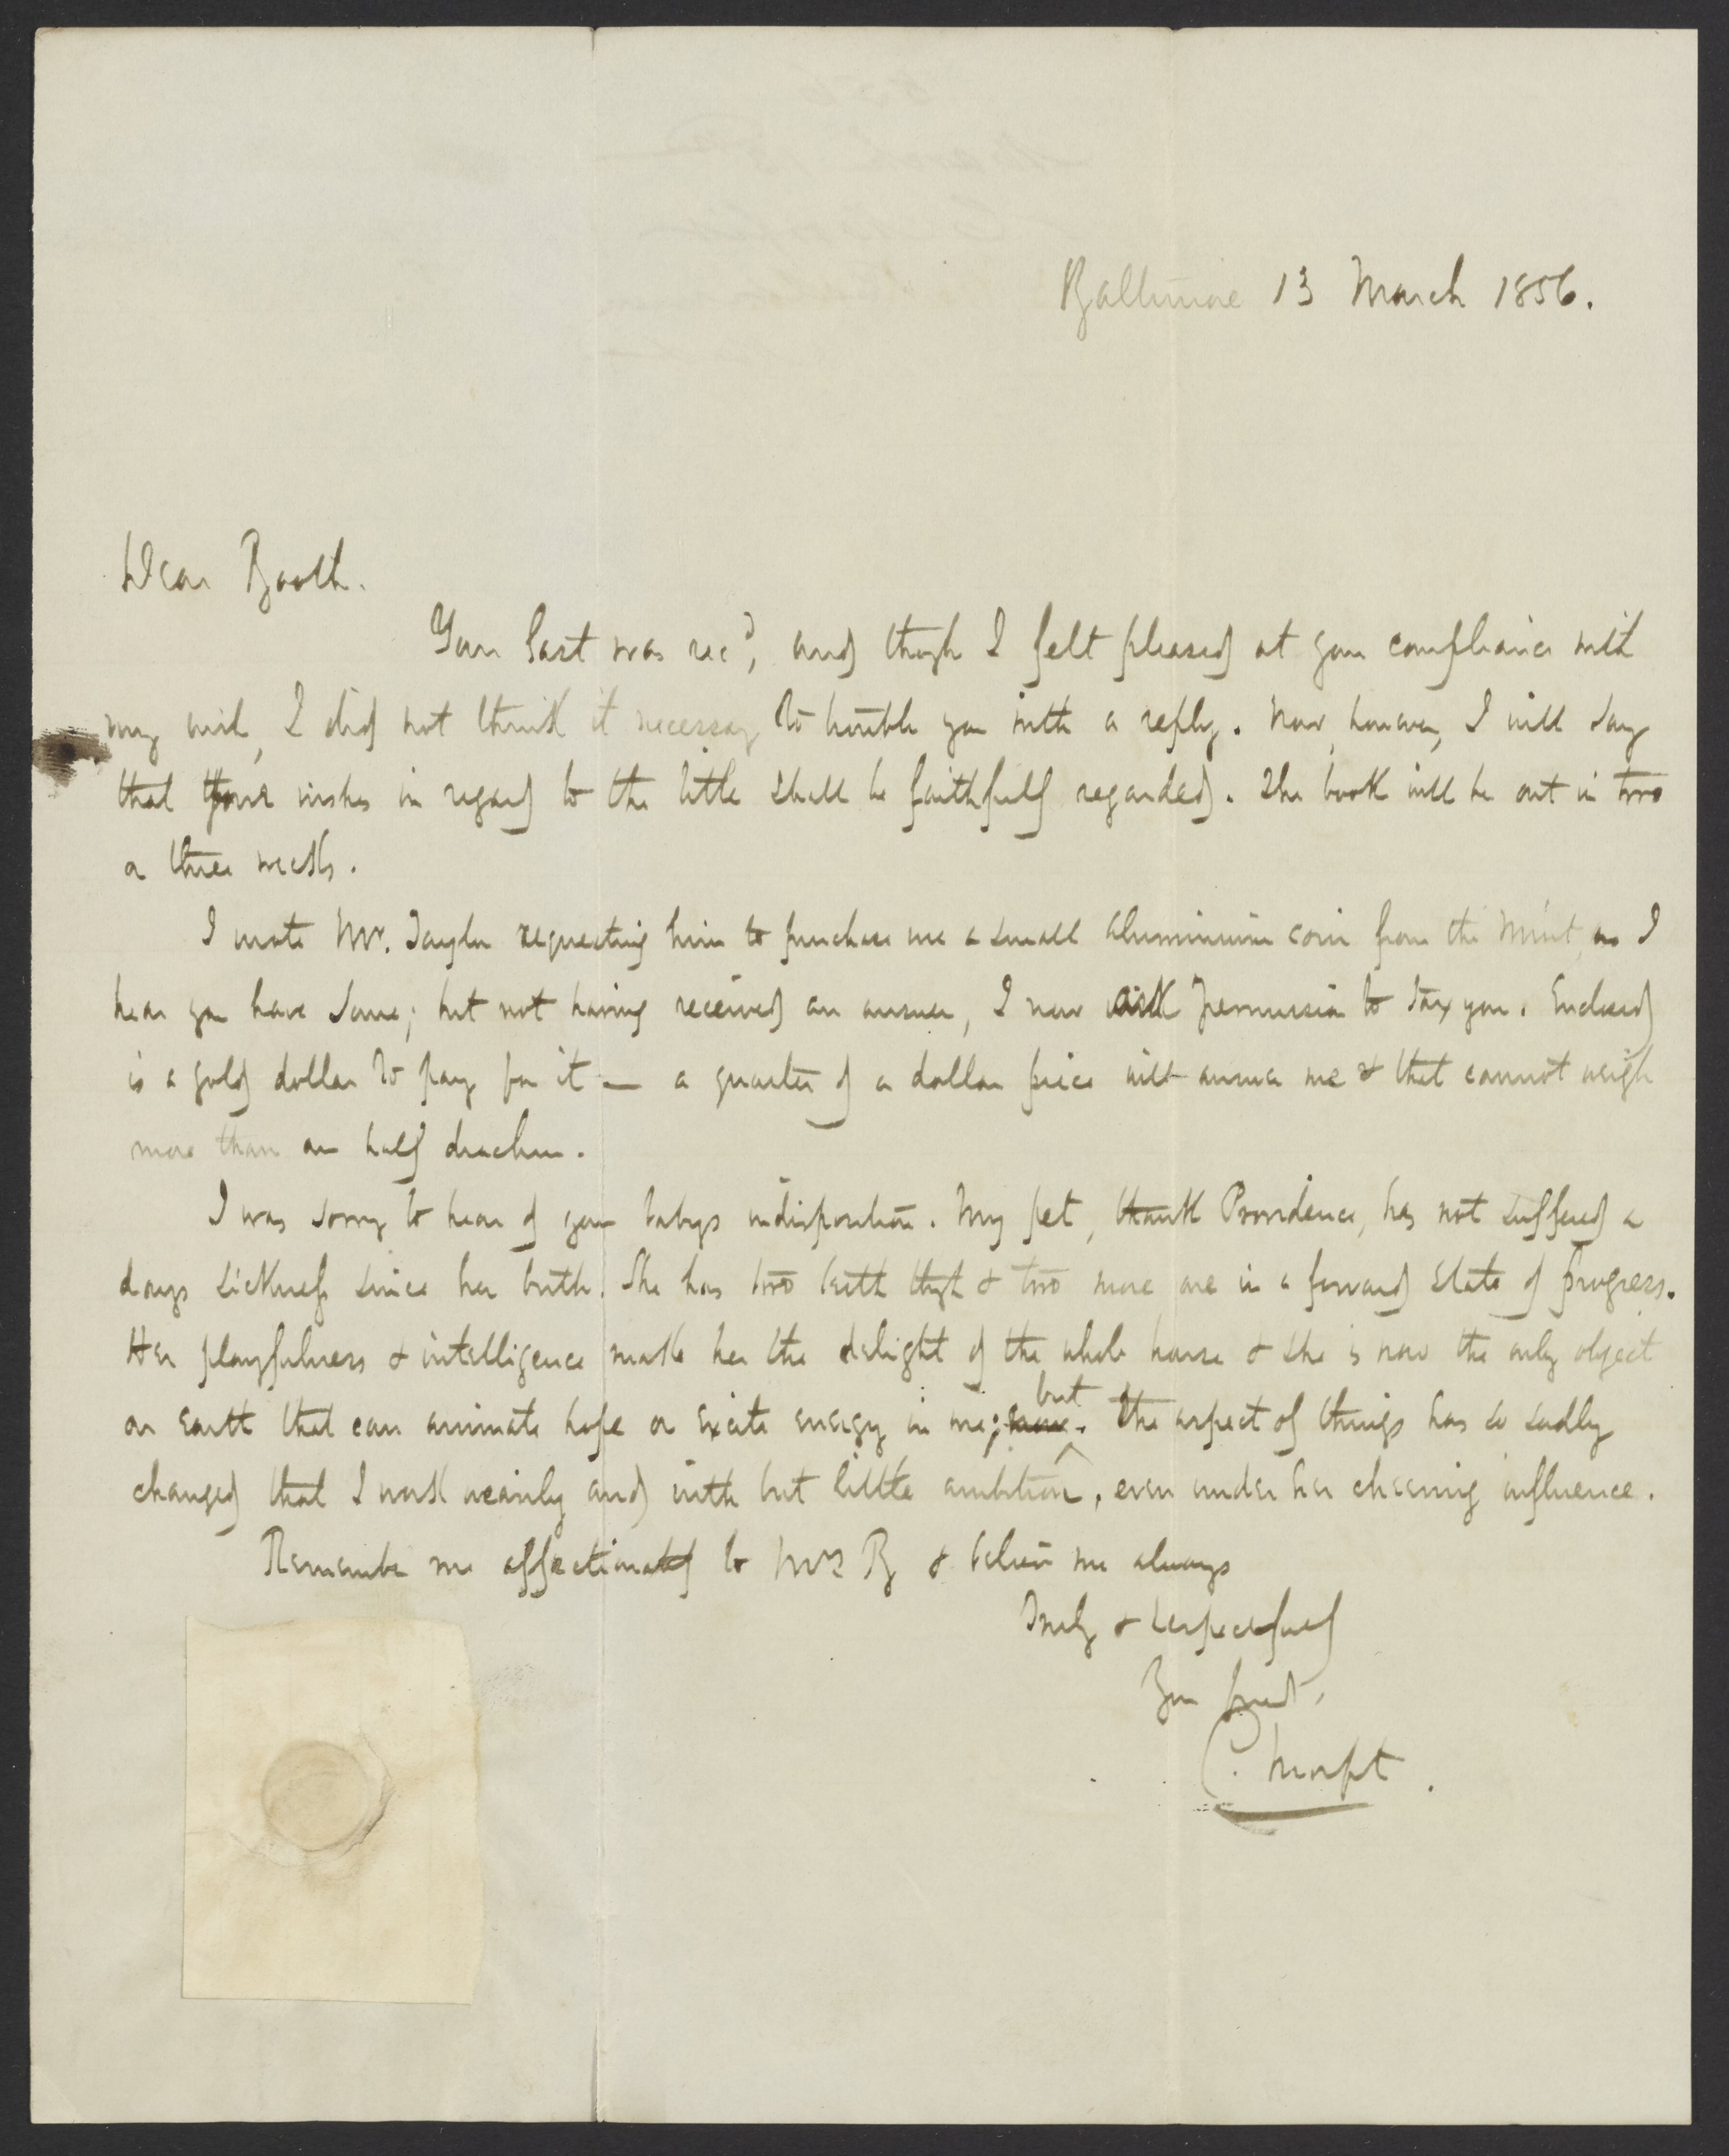 Baltimore 13 March 1856.
Dear Booth.
Your last was recd, and though I felt pleased at your compliance with
my wish, I did not think it necessary to trouble you with a reply. Now, however, I will say
that your wishes in regard to the title shall be faithfully regarded. The book will be out in two
or three weeks.
I wrote Mr. Taylor requesting him to purchase me a small aluminium coin from the Mint, as I
hear you have some; but not having received an answer, I now ask permission to tax you. Enclosed
is a gold dollar to pay for it — a quarter of a dollar piece will answer me & that cannot weigh
more than an half drachm.
I was sorry to hear of your babys indisposition. My pet, thank Providence, has not suffered a
days sickness since her birth. She has two teeth & two more are in a forward state of progress.
Her playfulness & intelligence make her the delight of the whole house & she is now the only object
on earth that can animate hope or excite energy in me; but the aspect of things has so sadly
changed that I work wearily and with but little ambition, even under her cheering influence.
Remember me affectionately to Mrs B & believe me always
Truly & respectfully
Your friend,
C. Morfit.